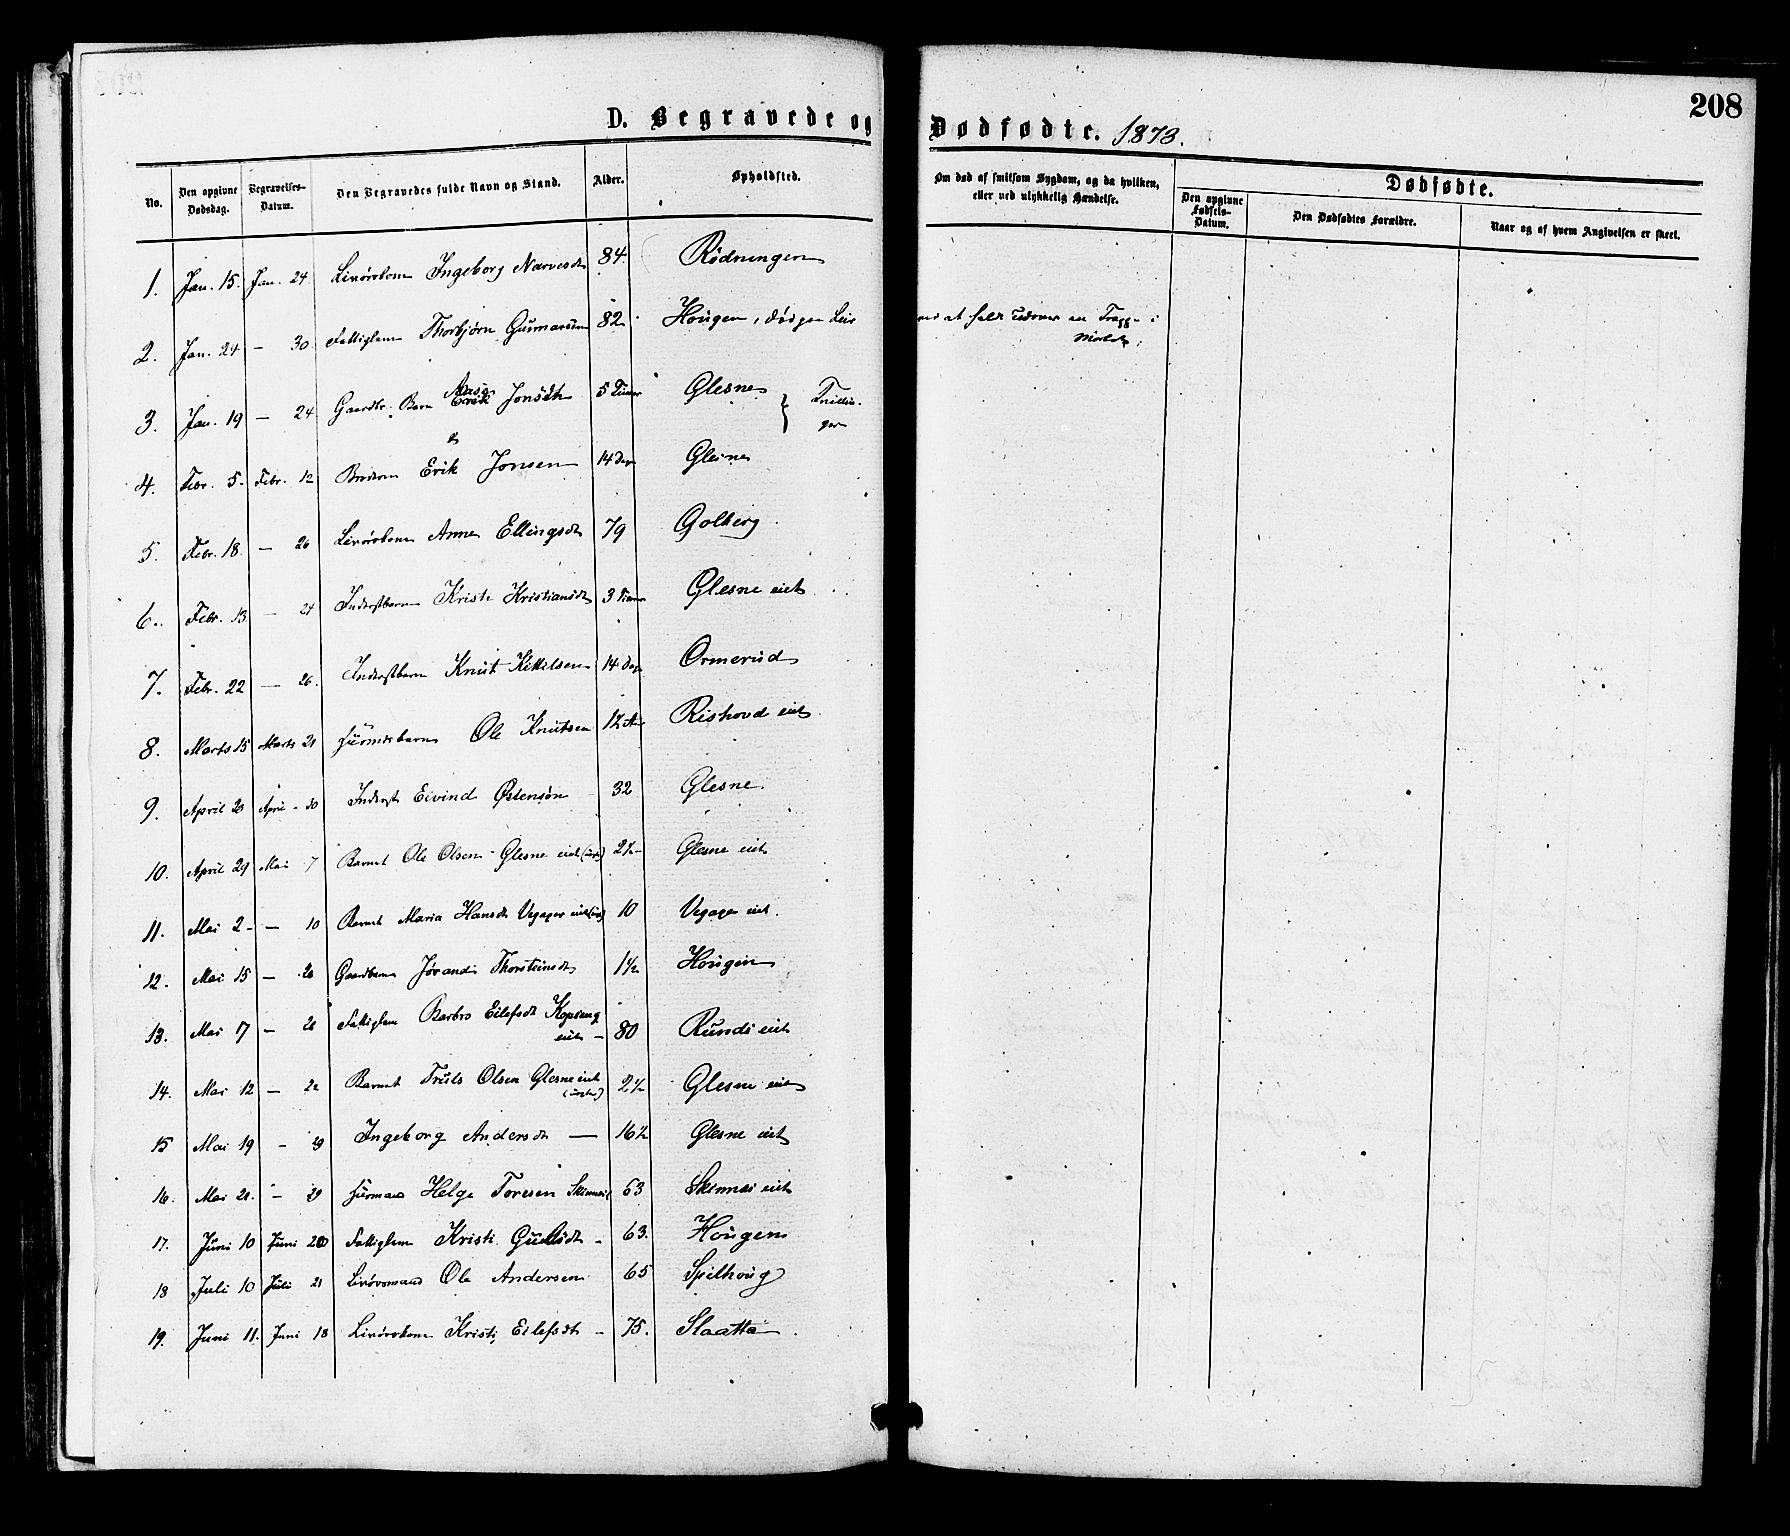 208
D. Begravede og Dødfødte. 1873.
No. Den opgivne Dødsdag. Begravelses-Datum. Den Begravedes fulde Navn og Stand. Alder. Opholdsted. Om død af smitsom Sygdom, og da hvilken, eller ved ulykkelig Hændelse. Dødfødte.
Den opgivne Fødsels-Datum. Den Dødfødtes Forældre. Naar og af hvem Angivelsen er skeet.
1. Jan. 15. Jan. 24 Ingeborg Narvesdt 84. Rödningen
2. Jan. 24 — 30 Thorbjörn Gunnarsen 82 Hougen, død paa Leir ved at falde udover en Trappe i
3. Jan. 19 — 24 Gaardbr. Barn Aase Jonsdt 5 Timer Glesne } Tvillin-
ger
4. Febr. 5. Febr. 12 Erik Jonsen 14 Dage Glesne
5. Febr. 18. — 26 Anne Ellingsdt 79 Golberg
6. Febr. 13 — 24 Inderstbarn Kristi Kristiansdt 3 Timer Glesne eiet
7. Febr. 22 — 26. Inderstbarn Knut Kittilsen 14 Dage Ormerud
8. Marts 15 Marts 21 Ole Knutsen 12 Rishovd eiet
9. April 23 April 30 Inderst Eivind Østensøn 32 Glesne.
10. April 29 Mai 7 Barnet Ole Olsen Glesne eiet 2½ Glesne eiet
11. Mai 2 — 10 Barnet Maria Hansdt 10
12. Mai 15 — 28 Gaardbarn Jørand Thorsteinsdt 1½ Hougen
13. Mai 17 — 28 Barbro Eilefsdt Kopseng
eiet — 80 Rundi eiet
14. Mai 12 — 22 Barnet Truls Olsen Glesne eiet 2½ Glesne eiet
15 Mai 19 — 29 Ingeborg Andersdt — 16½ Glesne eiet
16. Mai 21. — 29 Helge Toresen 63 Skinnes eiet
17. Juni 10 Juni 20 Kristi Gullsdt — 63. Hougen
18 Juli 10 Juli 21 Ole Andersen 65 Spilhoug
19. Juni 11. Juni 18 Kristi Eilefsdt — 75. Slaatta